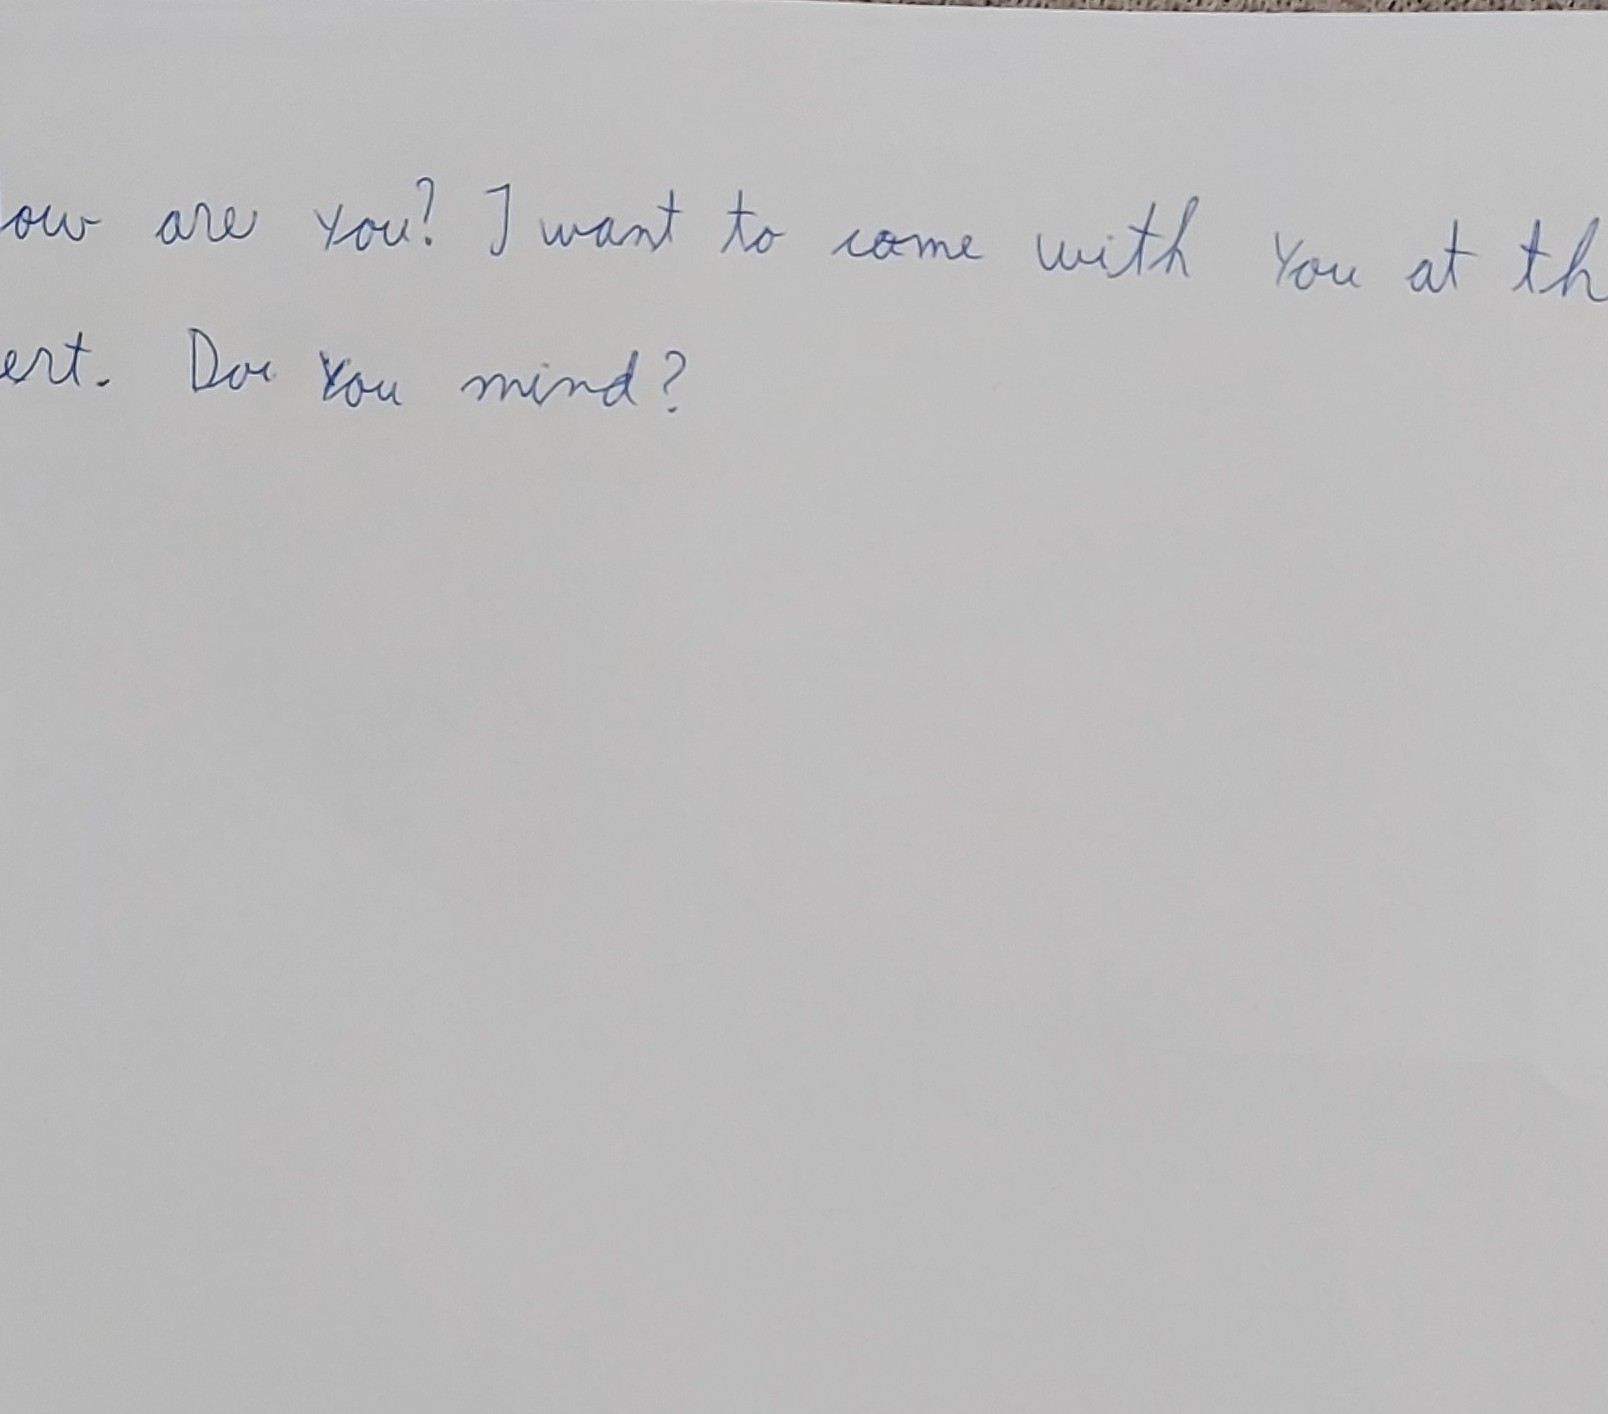 ow are you? I want to come with You at th
ert. Do You mind?